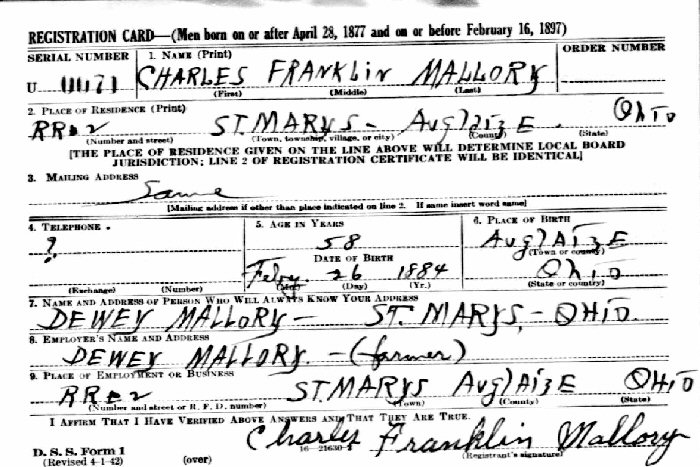 REGISTRATION CARD—(Men born on or after April 28, 1877 and on or before February 16, 1897)
SERIAL NUMBER 1. NAME (Print) ORDER NUMBER
U 0071 CHARLES FRANKLIN MALLORY
(First) (Middle) (Last)
2. PLACE OF RESIDENCE (Print)
RR 2 ST. MARYS - AuglAizE OHiO
(Number and street) (Town, township, village, or city) (County) (State)
[THE PLACE OF RESIDENCE GIVEN ON THE LINE ABOVE WILL DETERMINE LOCAL BOARD
JURISDICTION; LINE 2 OF REGISTRATION CERTIFICATE WILL BE IDENTICAL]
3. MAILING ADDRESS
Same
[Mailing address if other than place indicated on line 2. If same insert word same]
4. TELEPHONE 5. AGE IN YEARS 6. PLACE OF BIRTH
? 58 AuglAizE
(Town or county)
DATE OF BIRTH
Feby. 26 1884 OHiO
(Exchange) (Number) (Mo.) (Day) (Yr.) (State or country)
7. NAME AND ADDRESS OF PERSON WHO WILL ALWAYS KNOW YOUR ADDRESS
DEWEY MALLORY - ST. MARYS, - OHiO.
8. EMPLOYER'S NAME AND ADDRESS
DEWEY MALLORY. - (farmer)
9. PLACE OF EMPLOYMENT OR BUSINESS
RR 2 ST. MARYS AuglAizE OHiO
(Number and street or R. F. D. number) (Town) (County) (State)
I AFFIRM THAT I HAVE VERIFIED ABOVE ANSWERS AND THAT THEY ARE TRUE.
Charles Franklin Mallory
D. S. S. Form 1 16—21630 (Registrant's signature)
(Revised 4-1-42) (over)